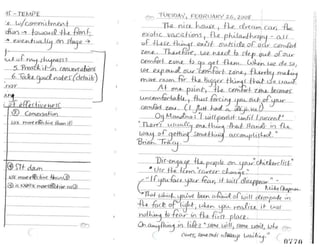 AT - TEMPE
w/commitment
tion → toward the front,
→ eventually on stage →
out of my shyness
5. Practice it in conversations
6. Take good notes (details)
of effectiveness
Conversation
use more effective than
Sit down
use more effective than
is more effective
TUESDAY, FEBRUARY 26, 2008
The nice house, the dream car, the
exotic vacations, the philanthropy - all
of these things exist outside of our comfort
zone. Therefore, we need to step out of our
comfort zone to go get them. When we do so,
we expand our comfort zone, thereby making
more room for the bigger things that we want.
At one point, the comfort zone becomes
uncomfortable, thus forcing you out of your
comfort zone. (I just had a
Og Mandino: I will persist until I succeed
"There's usually one thing that stands in the
way of getting something accomplished."
Brian Tracy
Dis-engage the people on your "chicken list"
* Use the term "career change"
- "If you face your fear, it will disappear" -
Keith Chapman
That which you've been afraid of will dissipate in
the face of light, when you realize it was
nothing to fear in the first place.
On anything in life: "some will, some won't, who
cares, someone's always waiting"
0770